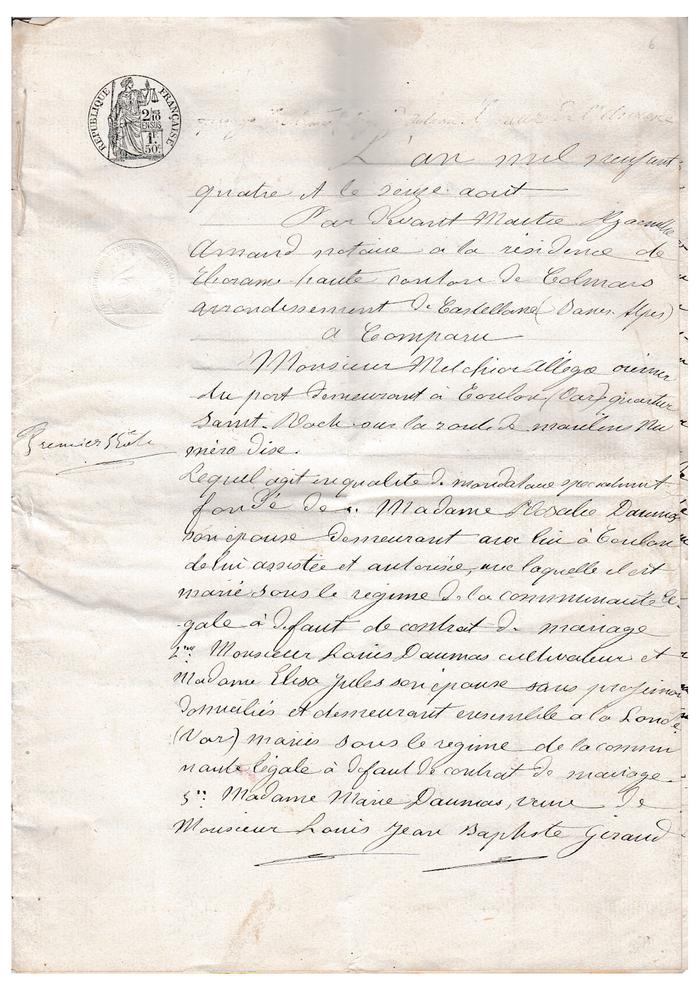 6
RÉPUBLIQUE FRANÇAISE
2/10
EN SUS
1F.
50c.
L'an mil neuf cent
quatre et le seize aout
Par devant Maitre Hyacinthe
Arnaud notaire a la résidence de
Thorame haute canton de Colmars
arrondissement de Castellane (Basses Alpes)
a Comparu
Monsieur Melchior Allègre ouvrier
du port demeurant à Toulon (Var) quartier
Saint-Roch sous la route de moulins Nu
méro dixe.
Premier Rôle
Lequel agit en qualité de mandataire specialement
fondé de 1. Madame Rosalie Daumas
son épouse demeurant avec lui à Toulon
de lui assistée et autorisée, avec laquelle il est
marié sous le regime de la communauté lé-
gale à défaut de contrat de mariage
2nt Monsieur Louis Daumas cultivateur et
Madame Elisa Jules son épouse sans profession
domiciliés et demeurant ensemble a la Londe
(Var) mariés sous le regime de la commu
nauté légale à défaut de contrat de mariage.
3nt Madame Marie Daumas, veuve de
Monsieur Louis Jean Baptiste Giraud